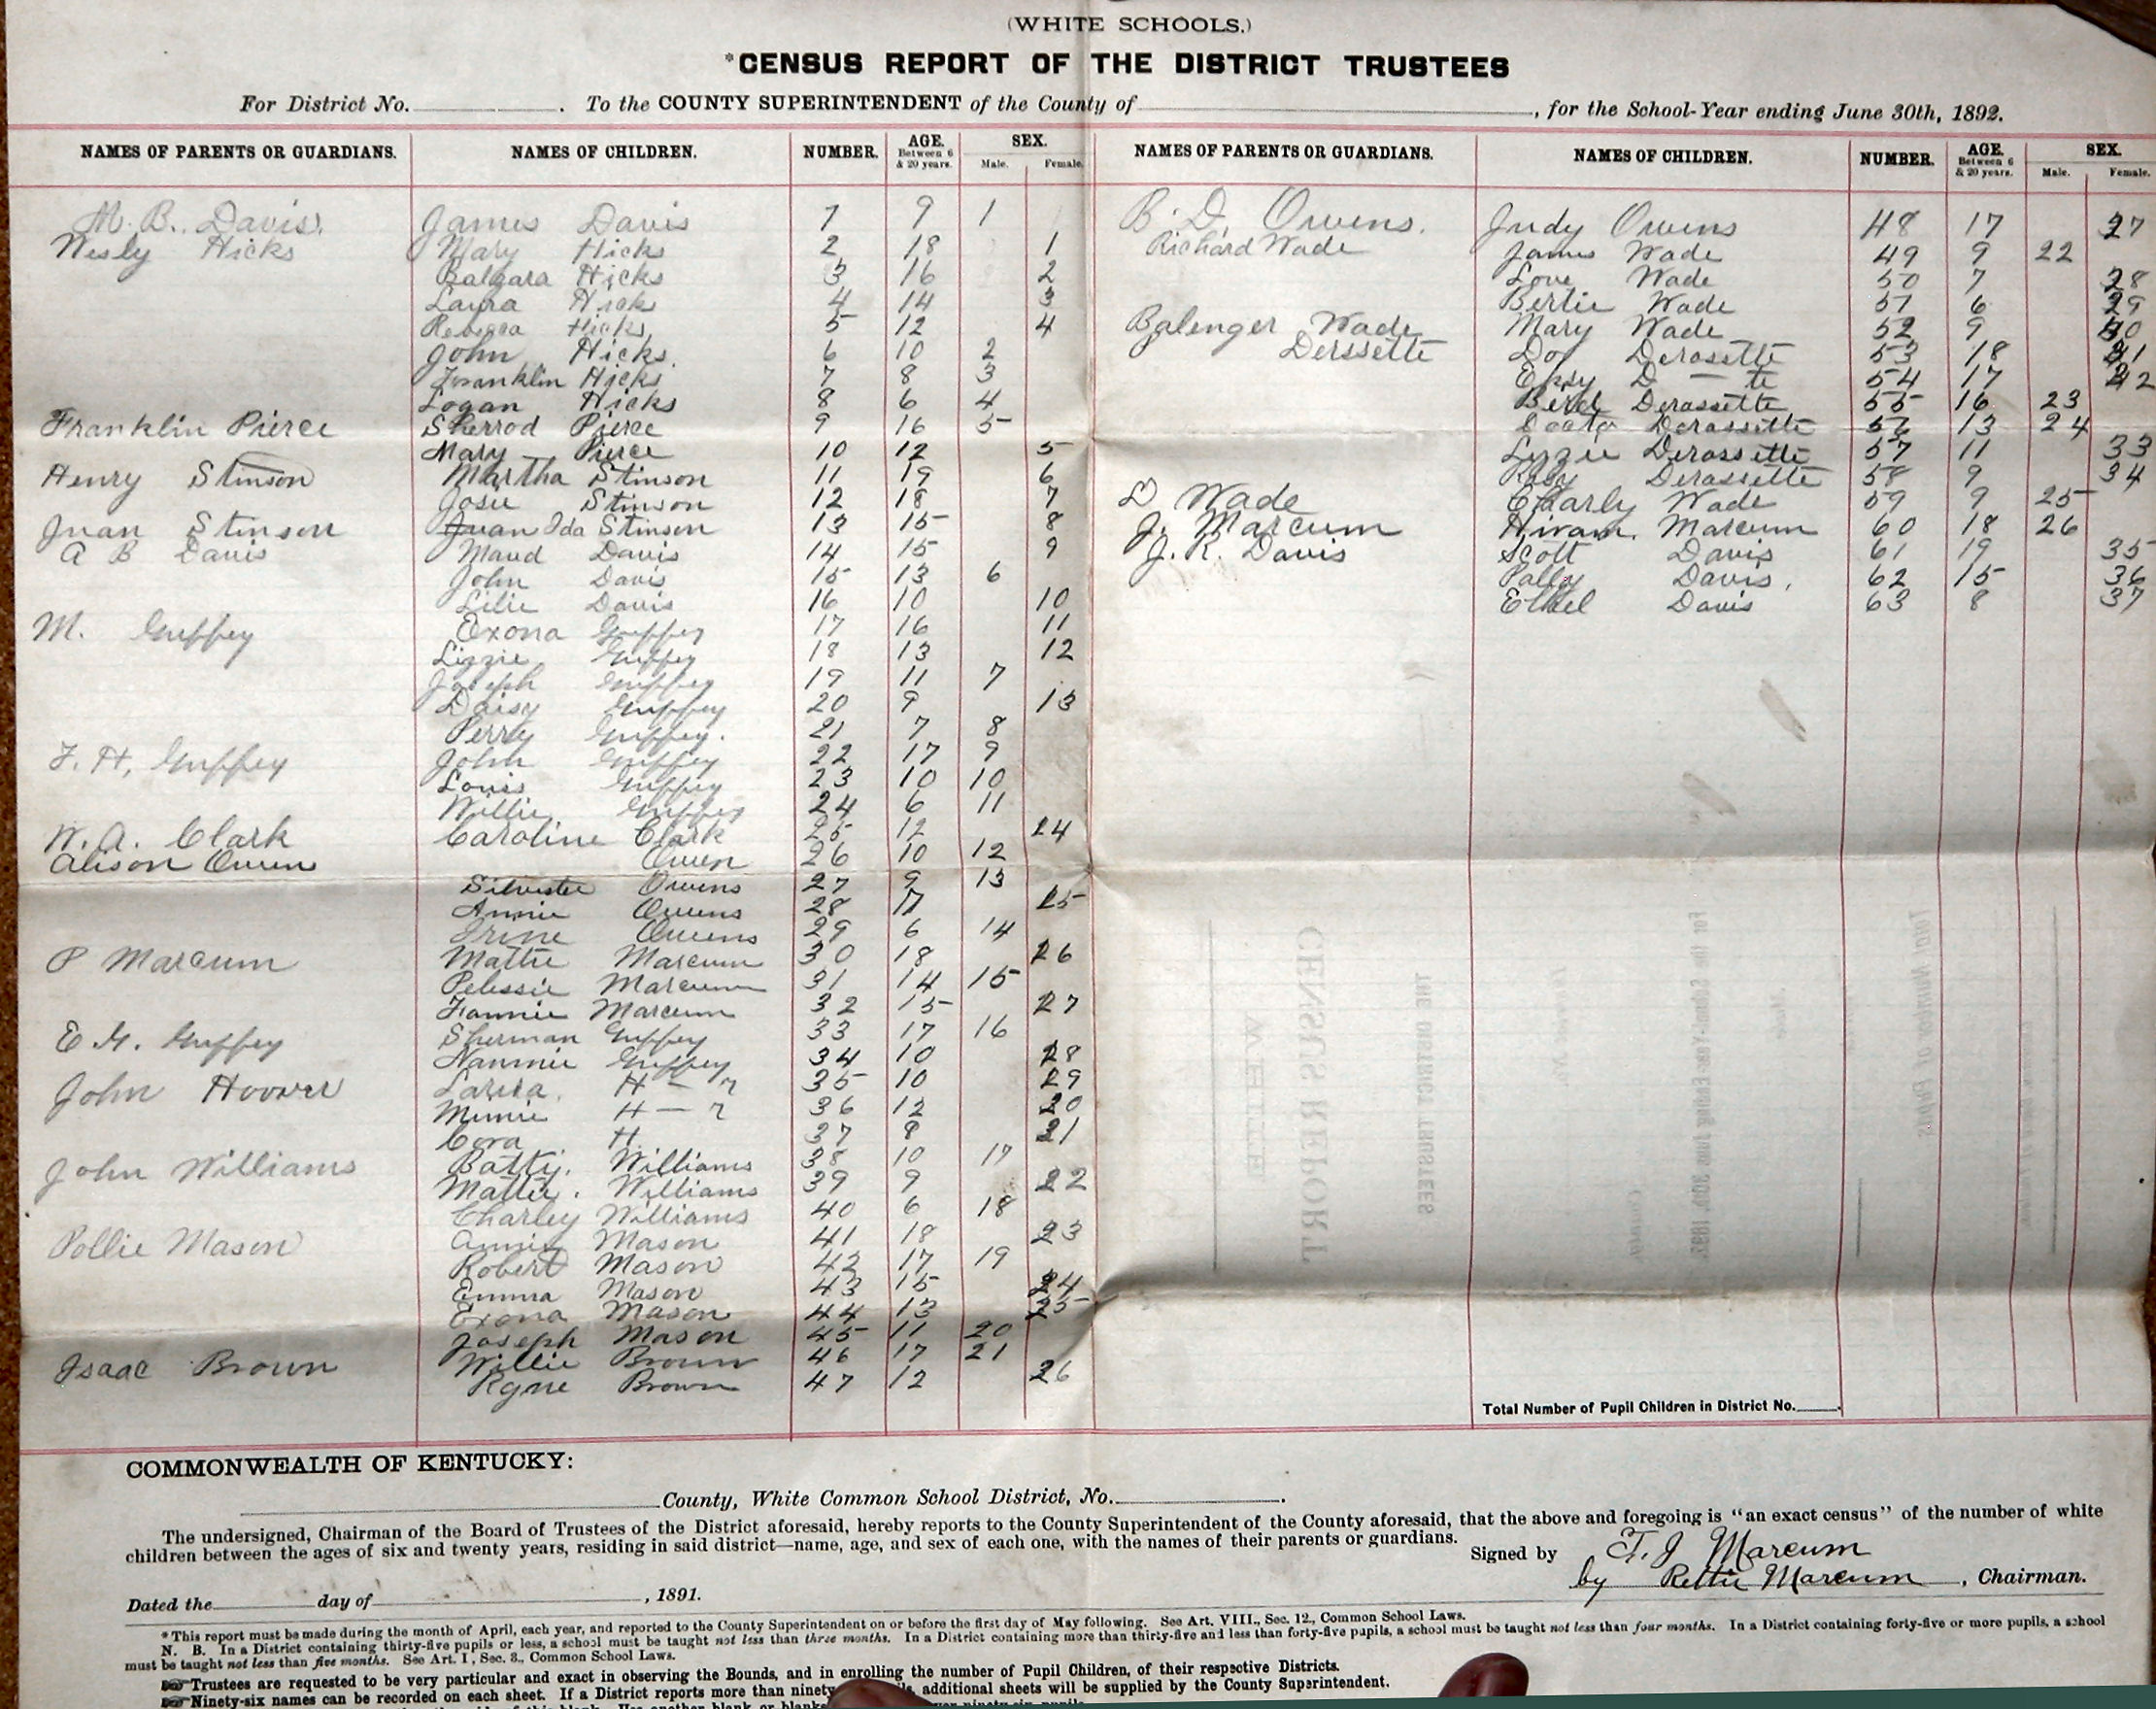 (WHITE SCHOOLS.)
*CENSUS REPORT OF THE DISTRICT TRUSTEES
For District No. . To the COUNTY SUPERINTENDENT of the County of , for the School-Year ending June 30th, 1892.
NAMES OF PARENTS OR GUARDIANS. NAMES OF CHILDREN. NUMBER. AGE. Between 6 & 20 years. SEX. Male. Female.
M. B. Davis. James Davis 1 9 1
Wesly Hicks Mary Hicks 2 18 1
Balbara Hicks 3 16 2
Laura Hicks 4 14 3
Rebecca Hicks 5 12 4
John Hicks. 6 10 2
Franklin Hicks 7 8 3
Logan Hicks 8 6 4
Franklin Pierce Sherrod Pierce 9 16 5
Mary Pierce 10 12 5
Henry Stinson Martha Stinson 11 19 6
Josie Stinson 12 18 7
Juan Stinson Juan Ida Stinson 13 15 8
A B Davis Maud Davis 14 15 9
John Davis 15 13 6
Lilie Davis 16 10 10
M. Guffey Exona Guffey 17 16 11
Lizzie Guffey 18 13 12
Joseph Guffey 19 11 7
Daisy Guffey 20 9 13
Perry Guffey. 21 7 8
F. H. Guffey John Guffey 22 17 9
Louis Guffey 23 10 10
Willie Guffey 24 6 11
W. A. Clark Caroline Clark 25 12 14
Alison Owens Owen 26 10 12
Silvester Owens 27 9 13
Annie Owens 28 17 15
Irine Owens 29 6 14
P Marcum Mattie Marcum 30 18 16
Pelessie Marcum 31 14 15
Fannie Marcum 32 15 17
E. G. Guffey Sherman Guffey 33 17 16
Nannie Guffey 34 10 18
John Hoover Laura. H — r 35 10 19
Minnie H — r 36 12 20
Cora H. 37 8 21
John Williams Batty. Williams 38 10 17
Matty. Williams 39 9 22
Charley Williams 40 6 18
Pollie Mason Annie Mason 41 18 23
Robert Mason 42 17 19
Emma Mason 43 15 24
Exona Mason 44 13 25
Joseph Mason 45 11 20
Isaac Brown Willie Brown 46 17 21
Brown 47 12 26
NAMES OF PARENTS OR GUARDIANS. NAMES OF CHILDREN. NUMBER. AGE. Between 6 & 20 years. SEX. Male. Female.
B. D. Owens. Judy Owens 48 17 27
Richard Wade James Wade 49 9 22
Love Wade 50 7 28
Bertie Wade 51 6 29
Balenger Wade Mary Wade 52 9 30
Derssette Derossette 53 18 31
D — te 54 17 32
Derossette 55 16 23
Derossette 13 24
Lizzie Derossette 57 11 33
Derossette 58 9 34
D. Wade Charly Wade 59 9 25
J. Marcum Hiram. Marcum 60 18 26
J. R. Davis Scott Davis 61 19 35
Polly Davis, 62 15 36
Ethel Davis 63 8 37
Total Number of Pupil Children in District No.
COMMONWEALTH OF KENTUCKY:
County, White Common School District, No. .
The undersigned, Chairman of the Board of Trustees of the District aforesaid, hereby reports to the County Superintendent of the County aforesaid, that the above and foregoing is "an exact census" of the number of white
children between the ages of six and twenty years, residing in said district—name, age, and sex of each one, with the names of their parents or guardians.
Signed by T. J Marcum
by Rettie Marcum, Chairman.
Dated the day of , 1891.
*This report must be made during the month of April, each year, and reported to the County Superintendent on or before the first day of May following. See Art. VIII., Sec. 12., Common School Laws.
N. B. In a District containing thirty-five pupils or less, a school must be taught not less than three months. In a District containing more than thirty-five and less than forty-five pupils, a school must be taught not less than four months. In a District containing forty-five or more pupils, a school
must be taught not less than five months. See Art. I, Sec. 3., Common School Laws.
Trustees are requested to be very particular and exact in observing the Bounds, and in enrolling the number of Pupil Children, of their respective Districts.
Ninety-six names can be recorded on each sheet. If a District reports more than ninety additional sheets will be supplied by the County Superintendent.